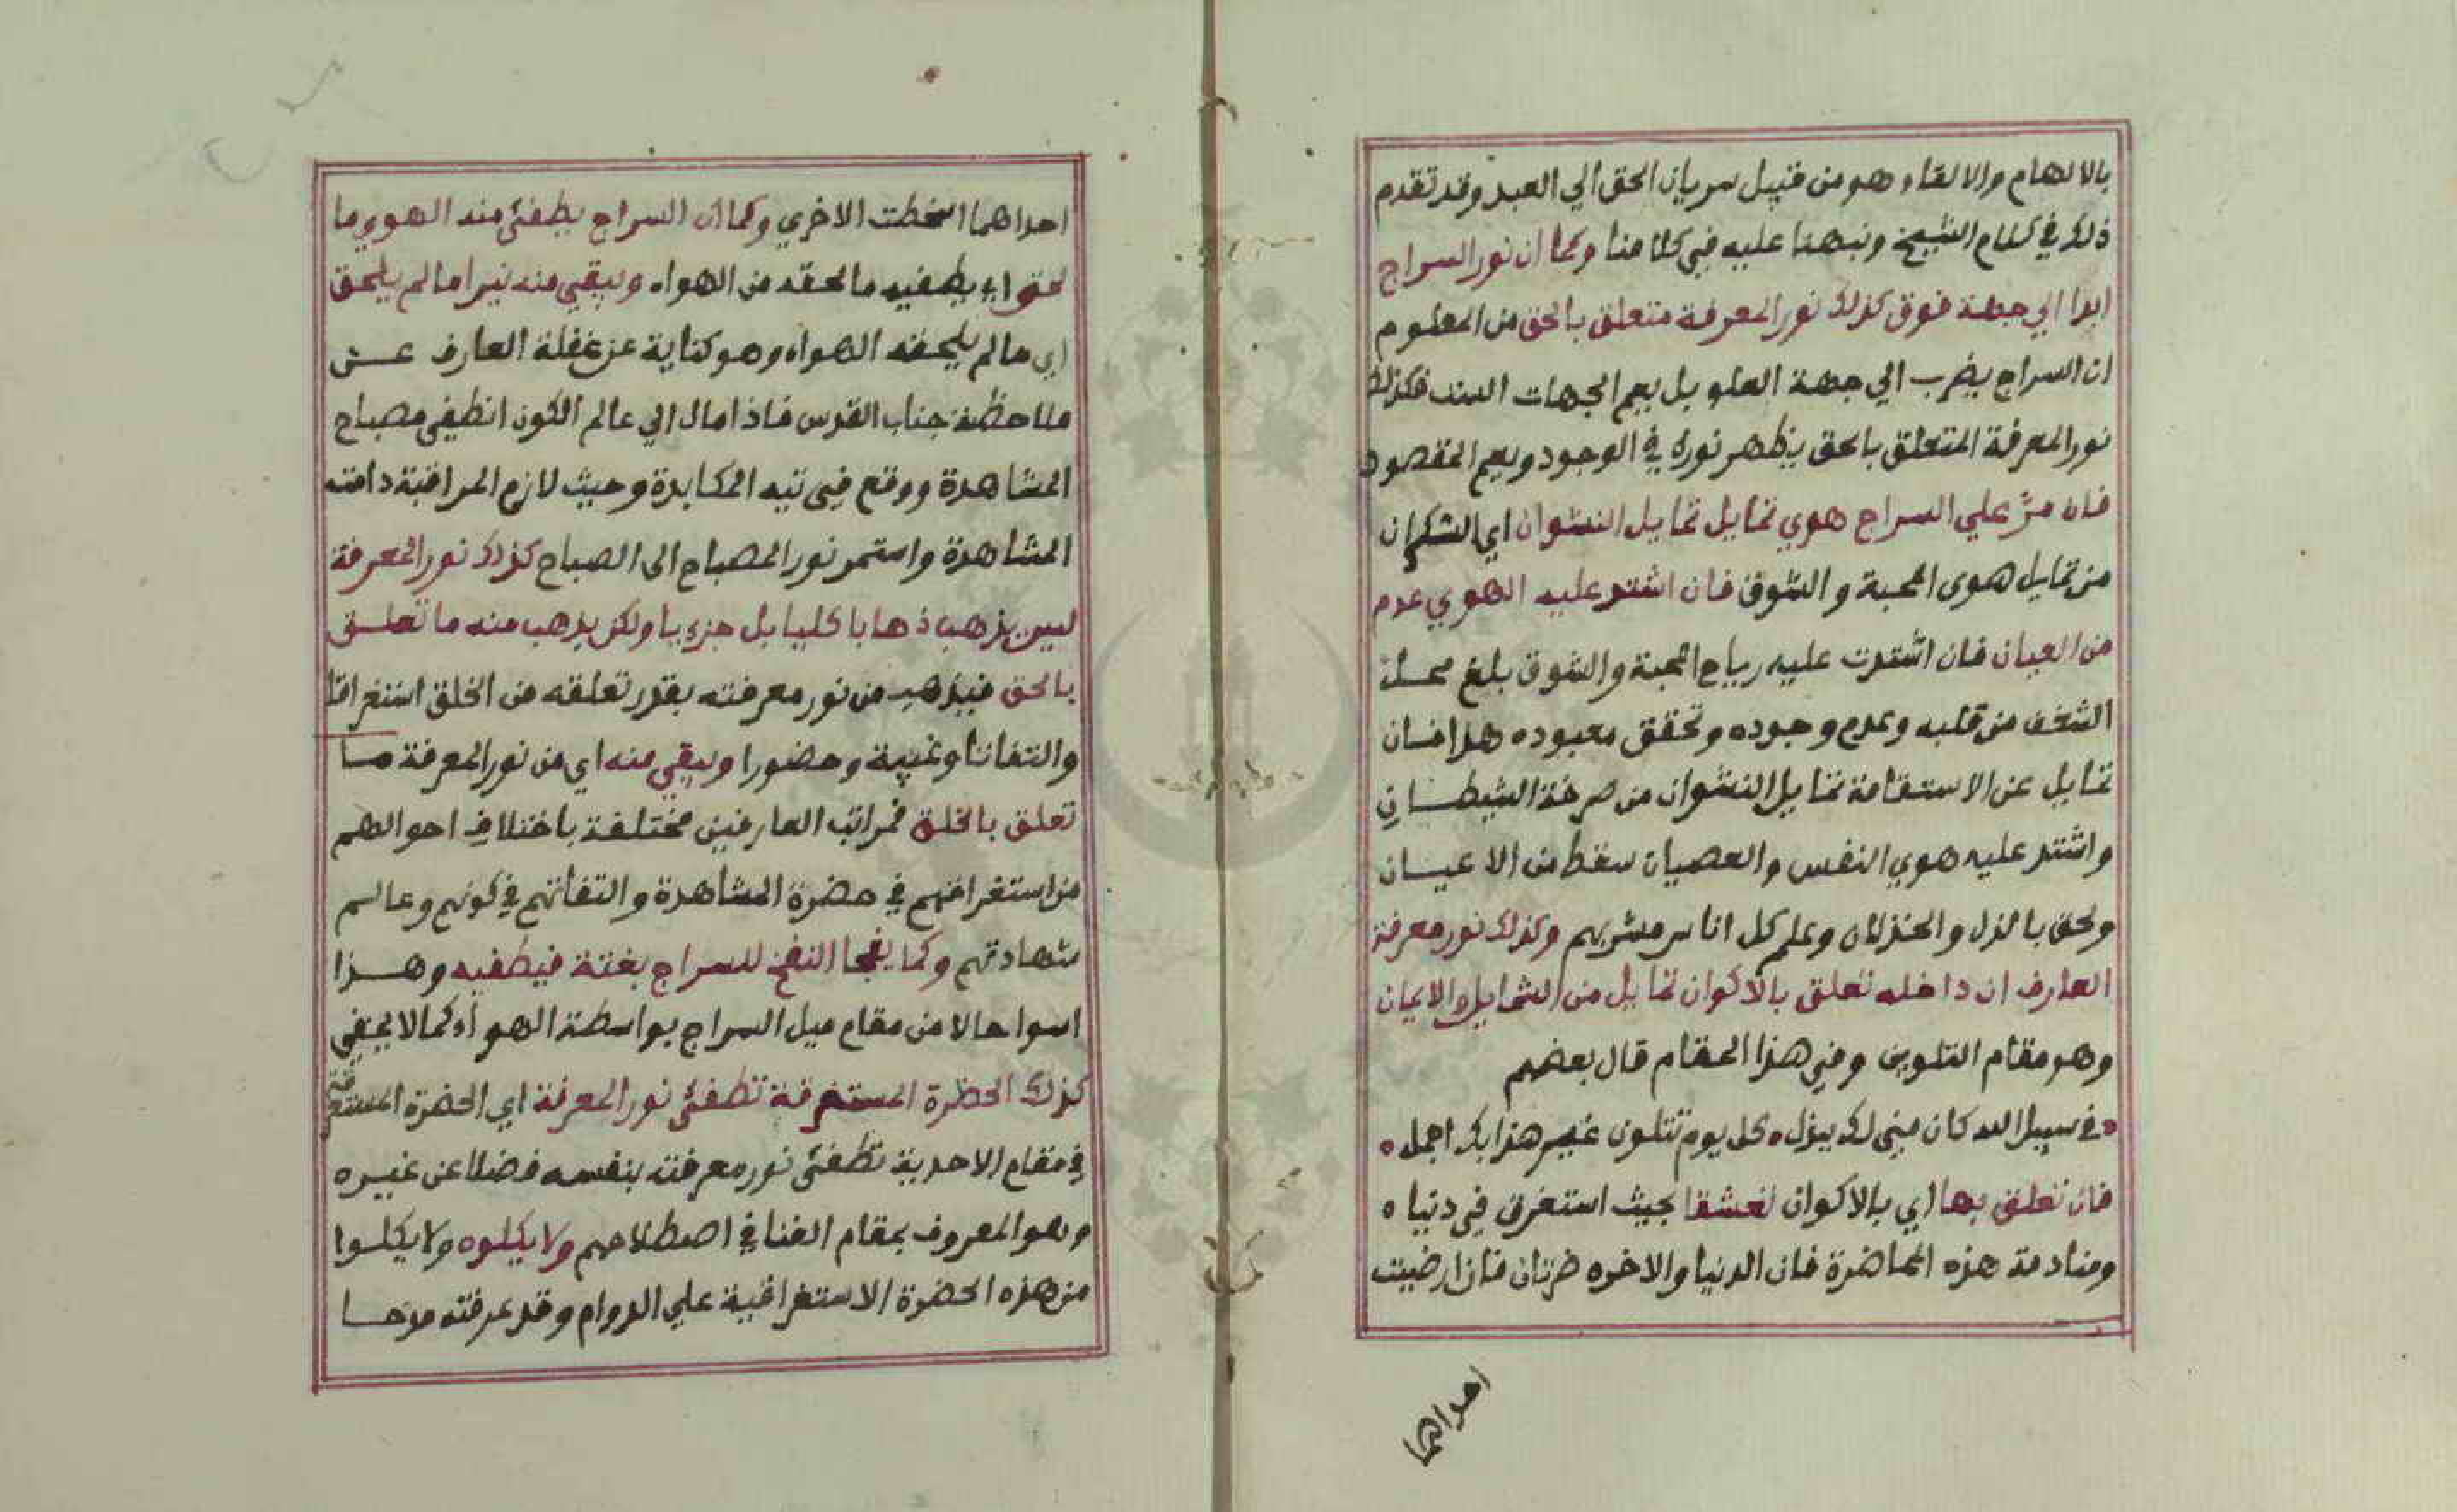 بالالهام والالقاء وهو من قبيل سريان الحق الي العبد وقد تقدم
ذلك في كلام الشيخ ونبهنا عليه في كلامنا وكما ان نور السراج
ابدا الي جهة فوق كذلك نور المعرفة متعلق بالحق من المعلوم
ان السراج يضرب الي جهة العلو بل يعم الجهات الست فكذلك
نور المعرفة المتعلق بالحق يظهر نوره في الوجود ويعم المقصود
فان مرّ علي السراج هوي تمايل تمايل النشوان اي السكران
من تمايل هوى المحبة والشوق فان اشتد عليه الهوي عدم
من العيان فان اشتدت عليه رياح المحبة والشوق بلغ محل
الشغف من قلبه وعدم وجوده وتحقق معبوده هذا فان
تمايل عن الاستقامة تمايل النشوان من صرخة الشيطان
واشتد عليه هوي النفس والعصيان سقط من الاعيان
ولحق بالذل والخذلان وعلم كل اناس مشربهم وكذلك نور معرفة
العارف ان داخله تعلق بالاكوان تمايل من الشمايل والايمان
وهو مقام التلوين وفي هذا المقام قال بعضهم
في سبيل الله كان مني لك يبذل كل يوم تتلون غير هذا بك اجمل
فان تعلق بها اي بالاكوان تعشقا بحيث استغرق في دنياه
ومنادمة هذه المحاضرة فان الدنيا والاخره ضرتان فان ارضيت
احداهما
احداهما اسخطت الاخري وكما ان السراج يطفئ منه الهوي ما
لحقه اي يطفيه ما لحقه من الهواء ويبقي منه نيرا ما لم يلحق
اي ما لم يلحقه الهواء وهو كناية عن غفلة العارف عن
ملاحظة جناب القدس فاذا مال الي عالم الكون انطفي مصباح
المشاهدة ووقع في تيه المكابدة وحيث لازم المراقبة دامته
المشاهدة واستمر نور المصباح الى الصباح كذلك نور المعرفة
ليس يذهب ذهابا كليا بل جزءيا ولكن يذهب منه ما تعلق
بالحق فيذهب من نور معرفته بقدر تعلقه من الخلق استغراقا
والتفاتا وغيبة وحضورا ويبقي منه اي من نور المعرفة ما
تعلق بالخلق فمراتب العارفين مختلفة باختلاف احوالهم
من استغراقهم في حضرة المشاهدة والتفاتهم في كونهم وعالم
شهادتهم وكما يفجا النفخ للسراج بغتة فيطفيه وهذا
اسوا حالا من مقام ميل السراج بواسطة الهواء كما لا يخفي
كذلك الحضرة المستغرقة تطفئ نور المعرفة اي الحضرة المستغرقة
في مقام الاحدية تطفئ نور معرفته بنفسه فضلا عن غيره
وهو المعروف بمقام الفنا في اصطلاحهم ولا يكلوه ولا يكلوا
من هذه الحضرة الاستغراقية علي الدوام وقد عرفته مدحا